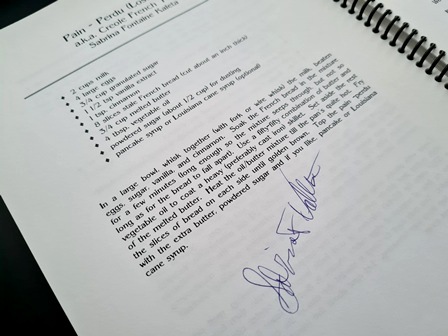 Pain - Perdu (Los
a.k.a. Creole French
Sabrina Fontaine Kaleta
2 cups milk
4 large eggs
3/4 cup granulated sugar
1 1/2 tsp. vanilla extract
1 tsp. cinnamon
8 slices stale French bread (cut about an inch thick)
3/4 cup melted butter
4 tbsp. vegetable oil
powdered sugar (about 1/2 cup) for dusting
pancake syrup or Louisiana cane syrup (optional)
In a large bowl, whisk together with fork or wire whisk the milk, beaten
eggs, sugar, vanilla, and cinnamon. Soak the French bread in the mixture
for a few minutes (long enough so the mixture seeps through but not so
long as for the bread to fall apart). Use a fifty-fifty combination of butter and
vegetable oil to coat a heavy (preferably cast iron) skillet. Set aside the rest
of the melted butter. Heat the oil/butter mixture till the pan's quite hot. Fry
the slices of bread on each side until golden brown. Top the pain perdu
with the extra butter, powdered sugar and if you like, pancake or Louisiana
cane syrup.